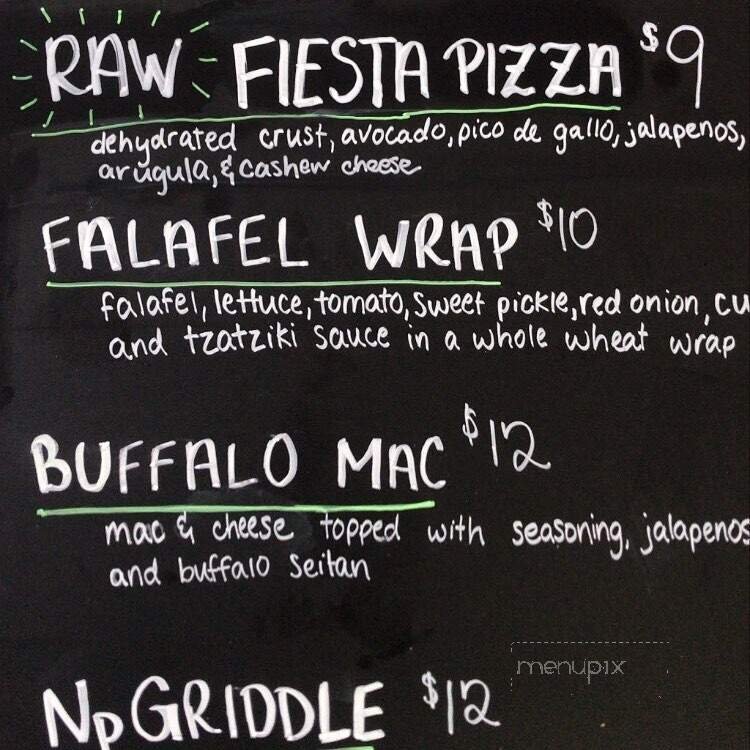 RAW FIESTA PIZZA $9
dehydrated crust, avocado, pico de gallo, jalapenos,
arugula, & cashew cheese
FALAFEL WRAP $10
falafel, lettuce, tomato, sweet pickle, red onion, cu
and tzatziki sauce in a whole wheat wrap
BUFFALO MAC $12
mac & cheese topped with seasoning, jalapenos
and buffalo seitan
menupix
Np GRIDDLE $12